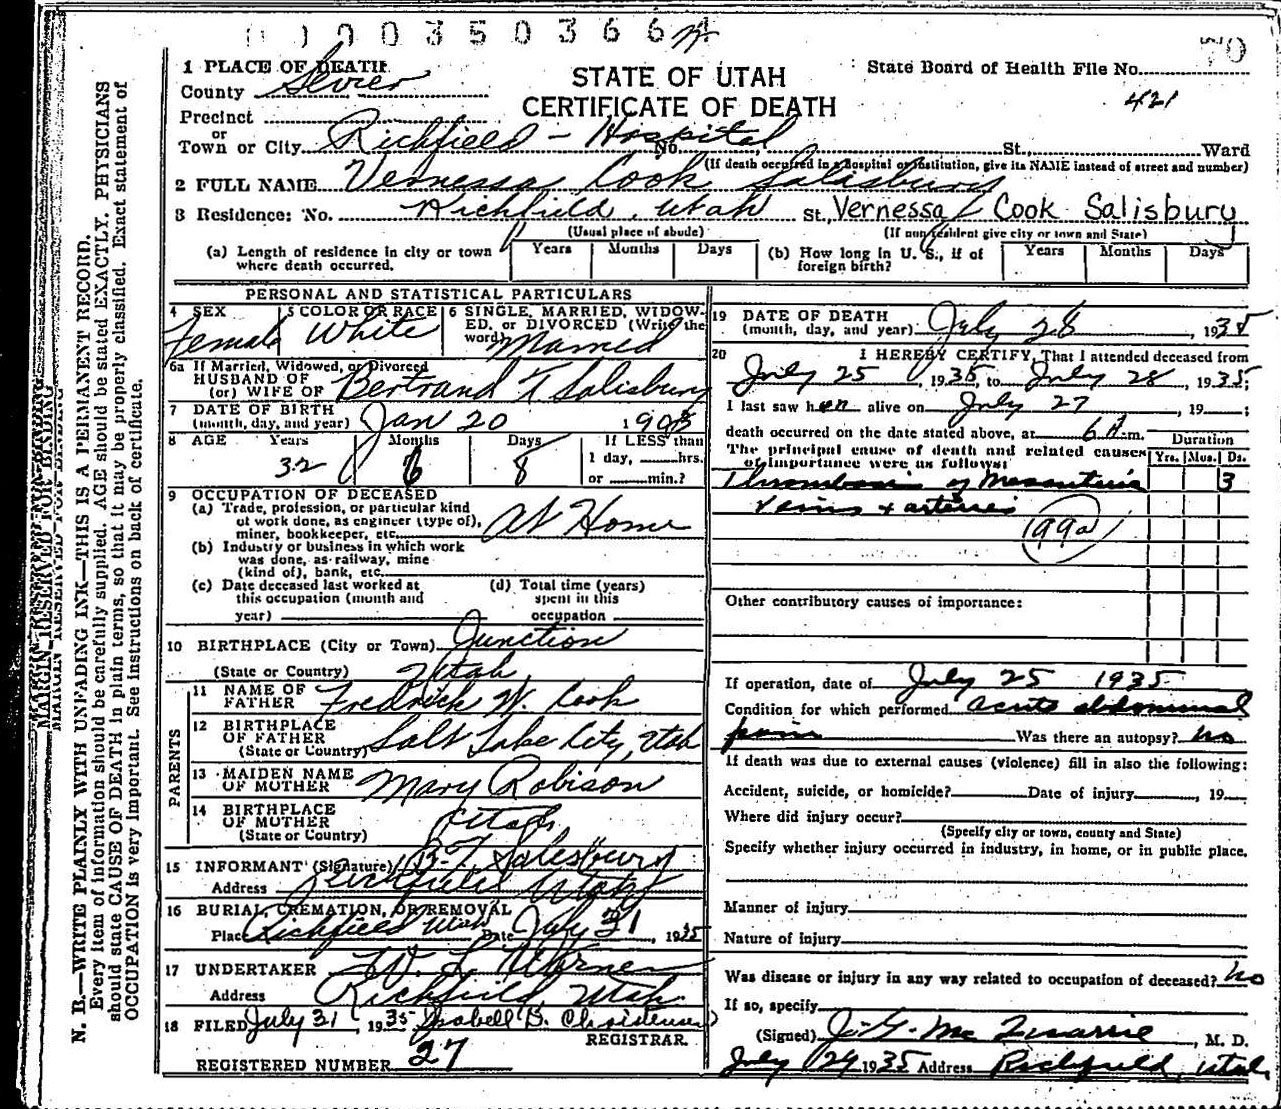 0 0 0 3 5 0 3 6 6
1 PLACE OF DEATH
County Sevier
STATE OF UTAH
CERTIFICATE OF DEATH
State Board of Health File No.
421
Precinct
or
Town or City Richfield - Hospital No. St., Ward
(If death occurred in a hospital or institution, give its NAME instead of street and number)
2 FULL NAME Vernessa Cook Salisbury
3 Residence: No. Richfield, Utah St. Vernessa Cook Salisbury
(Usual place of abode) (If non resident give city or town and State)
(a) Length of residence in city or town where death occurred. Years Months Days
(b) How long in U. S., if of foreign birth? Years Months Days
PERSONAL AND STATISTICAL PARTICULARS
4 SEX Female
5 COLOR OR RACE White
6 SINGLE, MARRIED, WIDOWED, or DIVORCED (Write the word) Married
6a If Married, Widowed, or Divorced
HUSBAND OF
(or) WIFE OF Bertrand T Salisbury
7 DATE OF BIRTH
(month, day, and year) Jan 20 1903
8 AGE Years Months Days If LESS than
32 6 8 1 day, hrs.
or min.?
9 OCCUPATION OF DECEASED
(a) Trade, profession, or particular kind
of work done, as engineer (type of),
miner, bookkeeper, etc. At Home
(b) Industry or business in which work
was done, as railway, mine
(kind of), bank, etc.
(c) Date deceased last worked at
this occupation (month and
year)
(d) Total time (years)
spent in this
occupation
10 BIRTHPLACE (City or Town) Junction
(State or Country) Utah
PARENTS
11 NAME OF
FATHER Fredrick W. Cook
12 BIRTHPLACE
OF FATHER
(State or Country) Salt Lake City, Utah
13 MAIDEN NAME
OF MOTHER Mary Robison
14 BIRTHPLACE
OF MOTHER Utah
(State or Country)
15 INFORMANT (Signature) B. T. Salisbury
Address Richfield Utah
16 BURIAL, CREMATION, OR REMOVAL
Place Richfield Utah Date July 31, 1935
17 UNDERTAKER W. L. Warner
Address Richfield, Utah.
18 FILED July 31, 1935 Isabell B. Christensen
REGISTRAR.
REGISTERED NUMBER 27
19 DATE OF DEATH
(month, day, and year) July 28, 1935
20 I HEREBY CERTIFY, That I attended deceased from
July 25, 1935 to July 28, 1935;
I last saw her alive on July 27, 19 ;
death occurred on the date stated above, at 6 A. m.
The principal cause of death and related causes
of importance were as follows:
Duration
Yrs. Mos. Ds.
Thrombosis of Mesenteric 3
veins + arteries
199a
Other contributory causes of importance:
If operation, date of July 25 1935
Condition for which performed acute abdominal
pain Was there an autopsy? no
If death was due to external causes (violence) fill in also the following:
Accident, suicide, or homicide? Date of injury , 19
Where did injury occur?
(Specify city or town, county and State)
Specify whether injury occurred in industry, in home, or in public place.
Manner of injury
Nature of injury
Was disease or injury in any way related to occupation of deceased? no
If so, specify
(Signed) J. G. Mc Quarrie, M. D.
July 29 1935 Address Richfield, Utah.
MARGIN RESERVED FOR BINDING
N. B.—WRITE PLAINLY WITH UNFADING INK—THIS IS A PERMANENT RECORD.
Every item of information should be carefully supplied. AGE should be stated EXACTLY. PHYSICIANS
should state CAUSE OF DEATH in plain terms, so that it may be properly classified. Exact statement of
OCCUPATION is very important. See instructions on back of certificate.